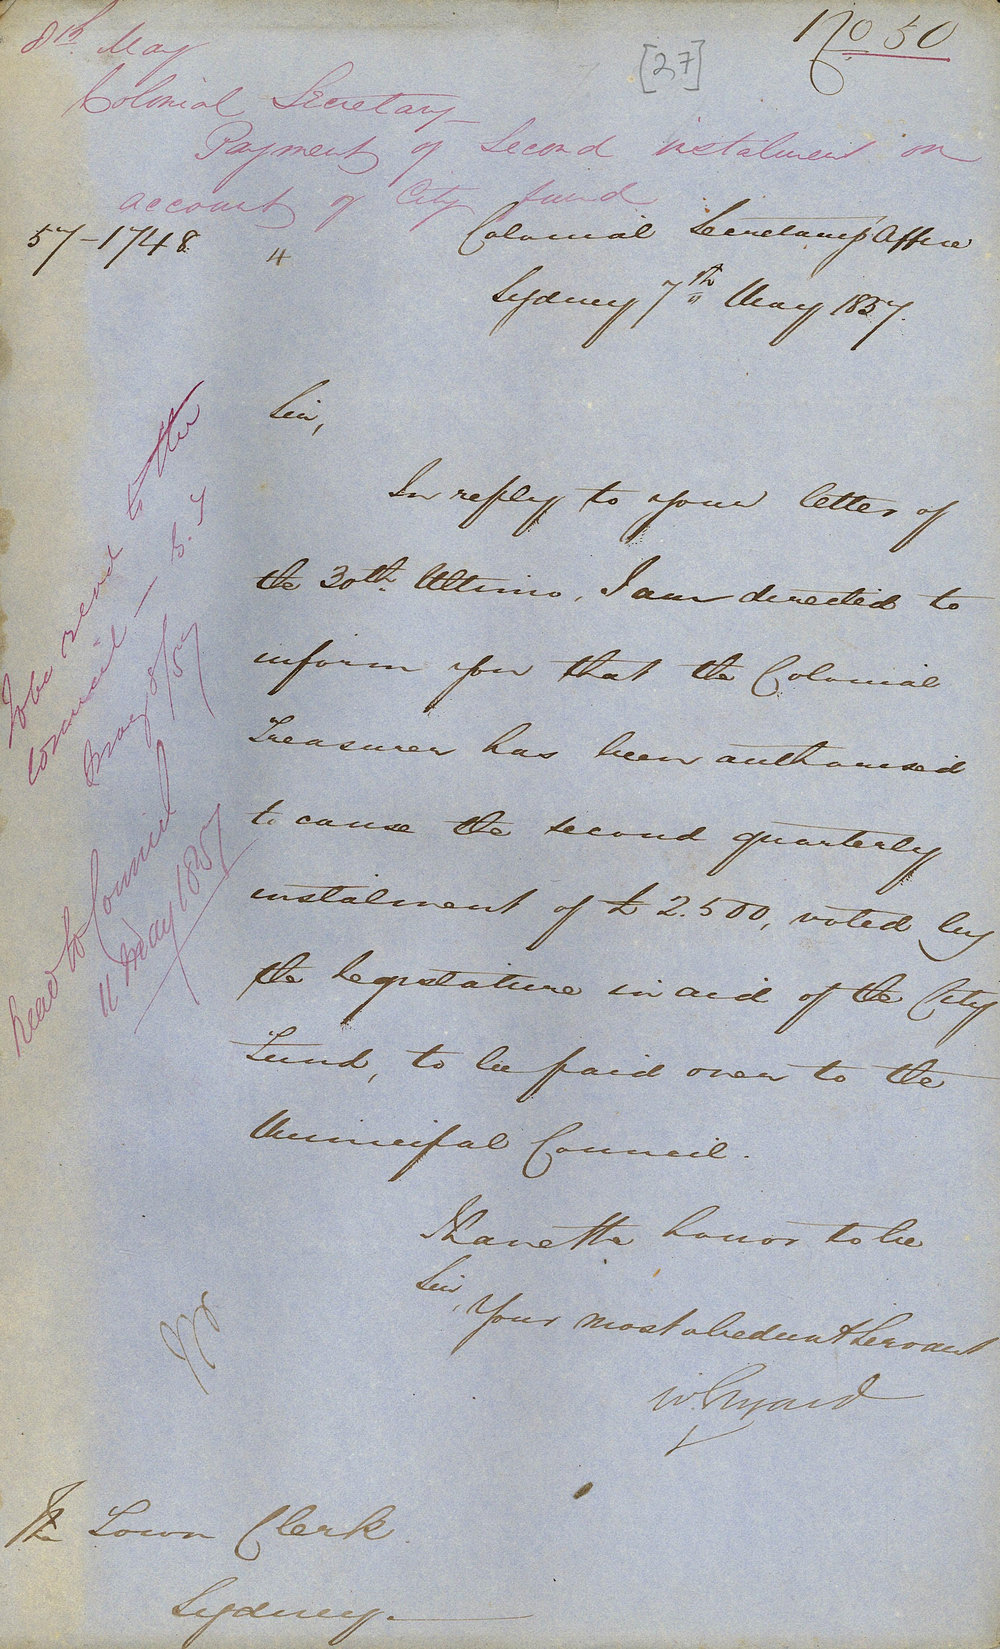 No 50
[27]
8th May
Colonial Secretary
Payment of Second instalment on
account of City fund
57-1748
4
Colonial Secretary's Office
Sydney 7th May 1857.
Sir,
In reply to your letter of
the 30th Ultimo, I am directed to
inform you that the Colonial
Treasurer has been authorised
to cause the second quarterly
instalment of £2.500, voted by
the Legislature in aid of the City
Fund, to be paid over to the
Municipal Council.
I have the honor to be
Sir,
Your most obedient Servant
W. Elyard
To be read to the
Council —
May 8/57
Read to Council
11 May 1857
The Town Clerk
Sydney.